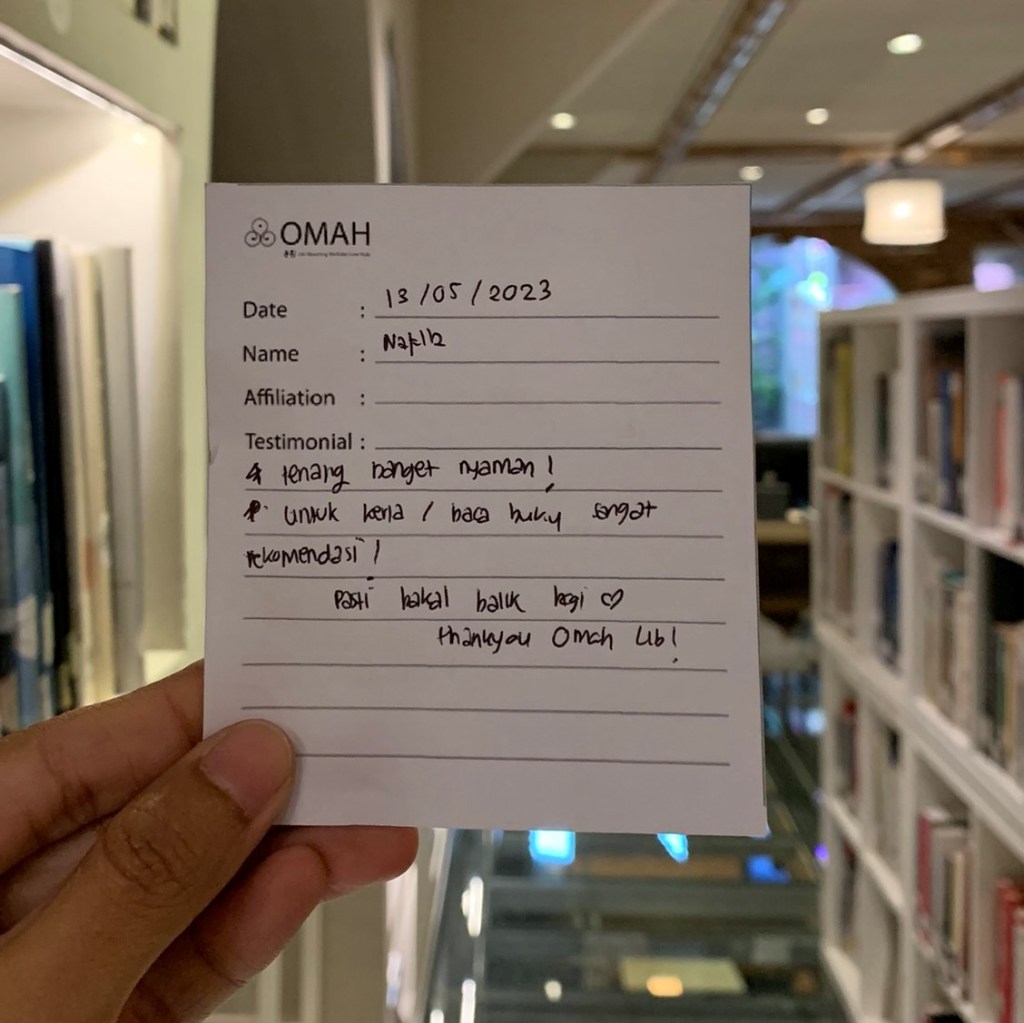 OMAH
Date : 13/05/2023
Name :
Affiliation :
Testimonial :
tenang banget nyaman!
untuk kerja / baca buku sangat
rekomendasi!
Pasti bakal balik lagi ♡
thankyou Omah Lib!